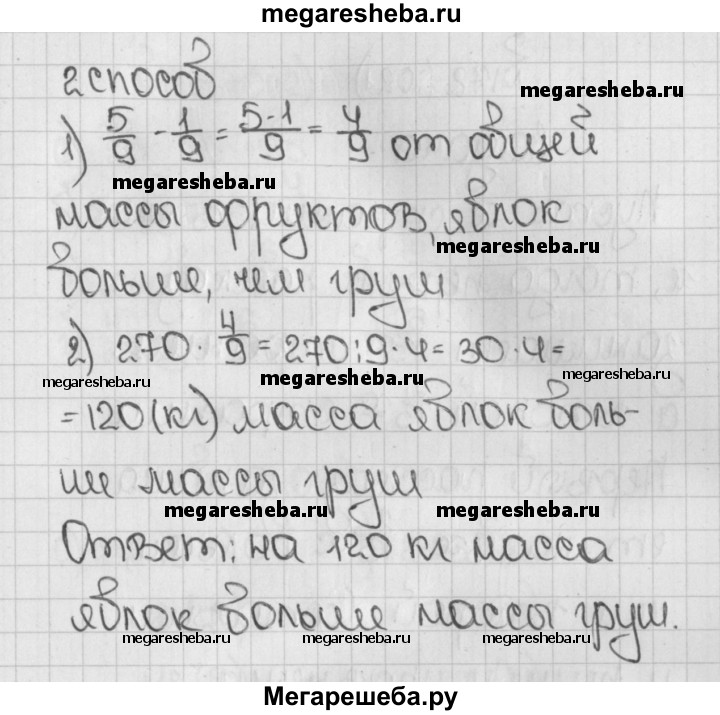 megaresheba.ru
2 способ
megaresheba.ru
1) 5/9 - 1/9 = 5-1/9 = 4/9 от общей
megaresheba.ru
массы фруктов, яблок
megaresheba.ru
больше, чем груш
2) 270 · 4/9 = 270 : 9 · 4 = 30 · 4 =
megaresheba.ru megaresheba.ru megaresheba.ru
= 120 (кг) масса яблок боль-
ше массы груш
megaresheba.ru megaresheba.ru
Ответ: на 120 кг масса
яблок больше массы груш.
megaresheba.ru megaresheba.ru megaresheba.ru megaresheba.ru
Мегарешеба.ру